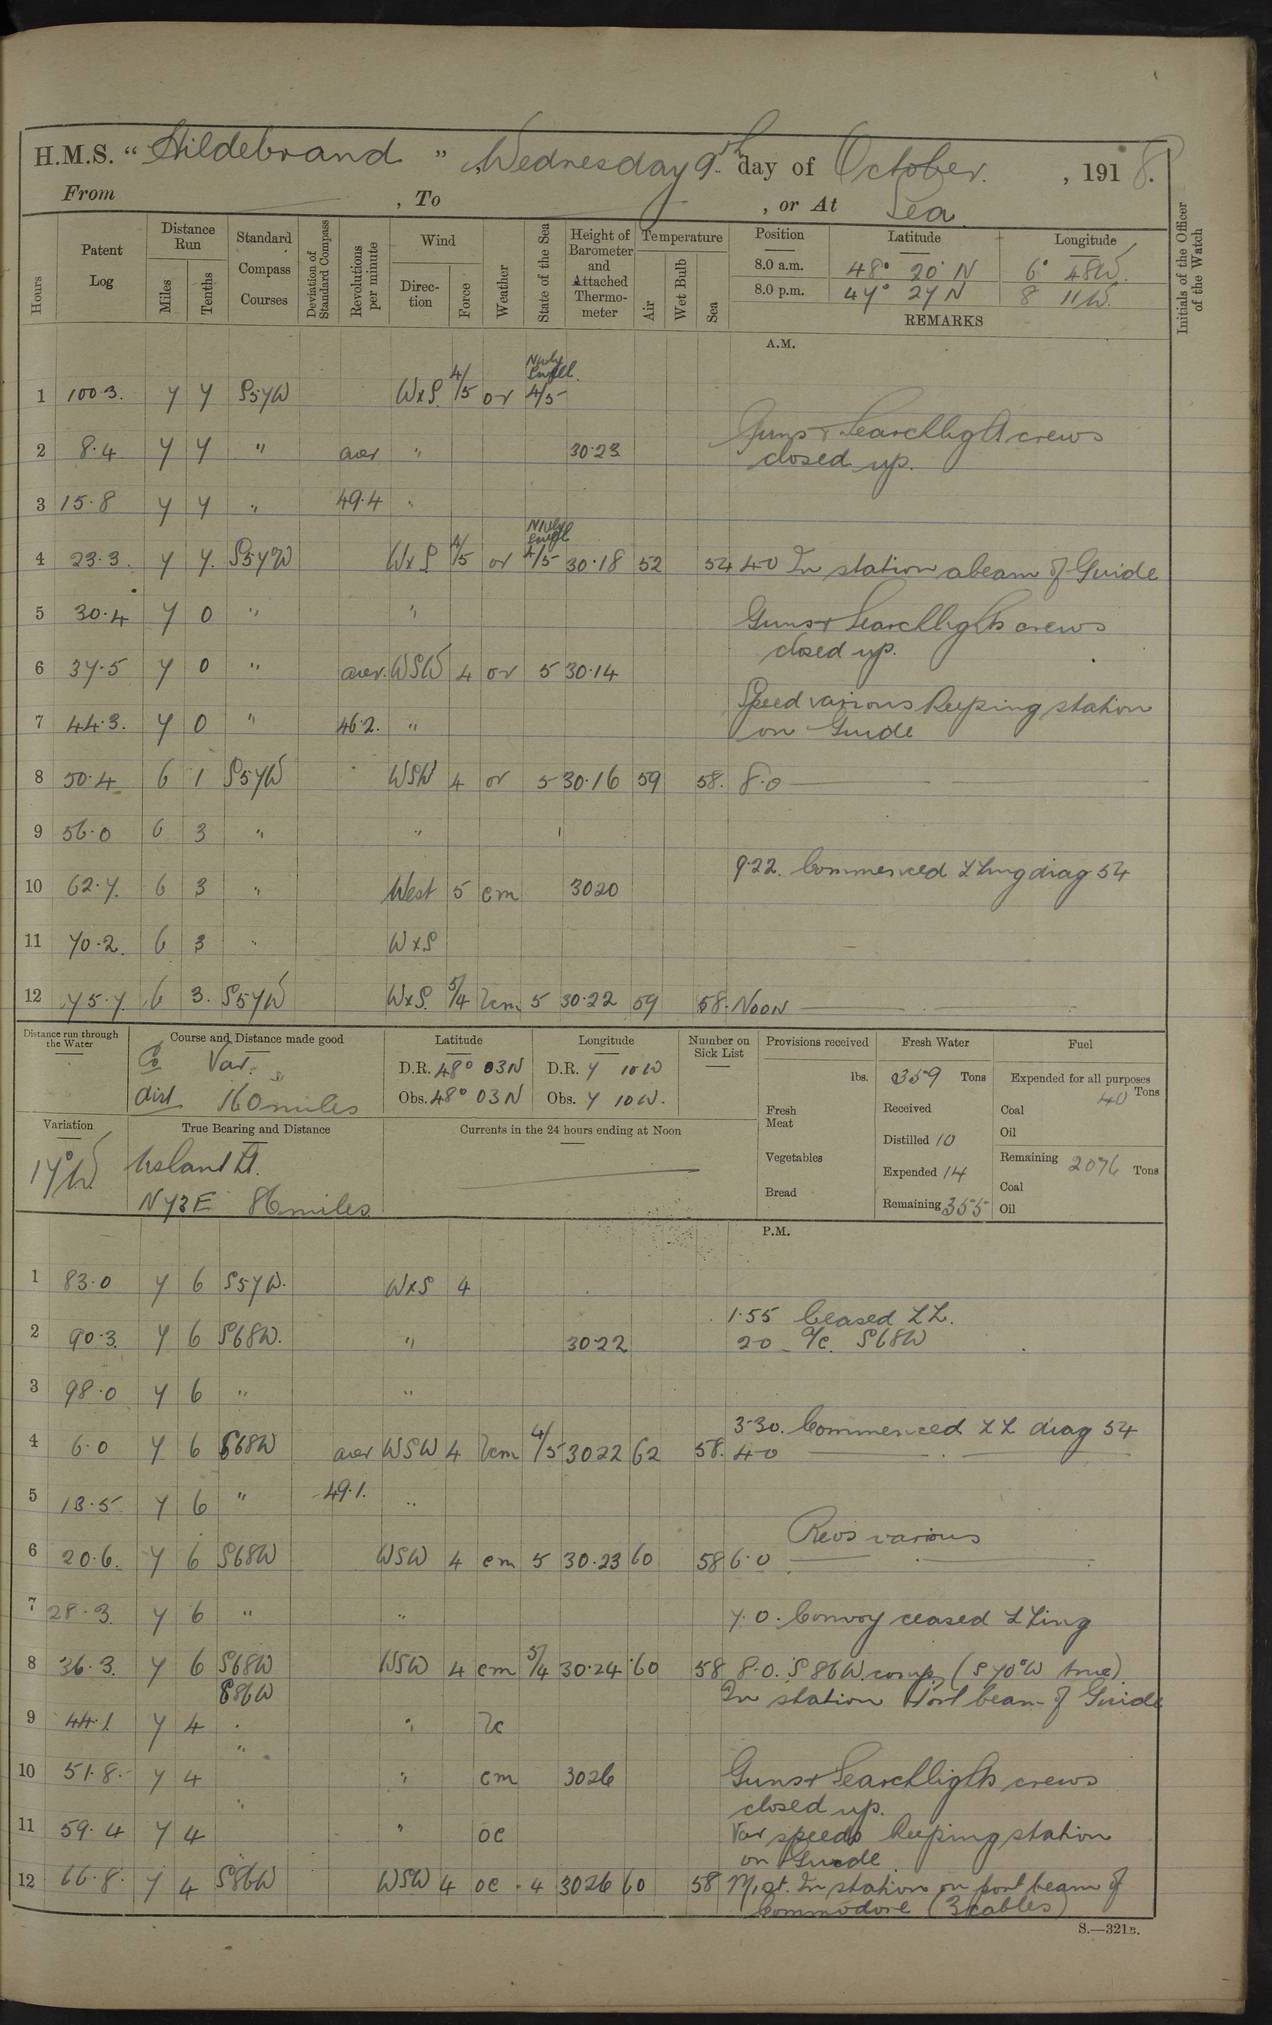 H.M.S. "Hildebrand", Wednesday 9th day of October, 1918.
From , To , or At Sea
Hours
Patent Log
Distance Run
Miles
Tenths
Standard Compass Courses
Deviation of Standard Compass
Revolutions per minute
Wind
Direction
Force
Weather
State of the Sea
Height of Barometer and Attached Thermometer
Temperature
Air
Wet Bulb
Sea
Position Latitude Longitude
8.0 a.m. 48° 20' N 6° 48W.
8.0 p.m. 47° 27 N 8 11W.
REMARKS
Initials of the Officer of the Watch
A.M.
Nwly Swell
1 100.3. 7 7 S57W WxS. 4/5 or 4/5
Guns & Searchlight crews
2 8.4 7 7 " aver " 30.23 closed up.
3 15.8 7 7 " 49.4 "
Nwly Swell
4 23.3. 7 7. S57W WxS 4/5 or 4/5 30.18 52 54 4.0 In station abeam of Guide
5 30.4 7 0 " " Guns & Searchlights crews
closed up.
6 37.5 7 0 " aver. WSW 4 or 5 30.14
Speed various keeping station
7 44.3. 7 0 " 46.2. " on Guide
8 50.4 6 1 S57W WSW 4 or 5 30.16 59 58. 8.0
9 56.0 6 3 " "
9.22. Commenced ZZing diag 54
10 62.7. 6 3 " West 5 cm 3020
11 70.2. 6 3 " WxS
12 75.7. 6 3. S57W WxS. 5/4 Zcm 5 30.22 59 58. Noon
Distance run through the Water
Course and Distance made good
Co Var.
dist 160 miles
Latitude
D.R. 48° 03N
Obs. 48° 03N
Longitude
D.R. 7 10W
Obs. 7 10W.
Number on Sick List
Provisions received
lbs.
Fresh Meat
Vegetables
Bread
Fresh Water
359 Tons
Received
Distilled 10
Expended 14
Remaining 355
Fuel
Expended for all purposes
40 Tons
Coal
Oil
Remaining 2076 Tons
Coal
Oil
Variation
17°W
True Bearing and Distance
Ushant Lt.
N73E 86 miles
Currents in the 24 hours ending at Noon
P.M.
1 83.0 7 6 S57W. WxS 4
1.55 Ceased ZZ.
2 90.3. 7 6 S68W. " 30.22 2.0 A/c. S68W
3 98.0 7 6 " "
3.30. Commenced ZZ diag 54
4 6.0 7 6 S68W aver WSW 4 Zcm 4/5 3022 62 58. 4.0
5 13.5 7 6 " 49.1. "
Revs various
6 20.6. 7 6 S68W WSW 4 cm 5 30.23 60 58 6.0
7 28.3. 7 6 " " 7.0. Convoy ceased ZZing
8 36.3. 7 6 S68W WSW 4 cm 5/4 30.24 60 58 8.0. S86W. comp. (S70°W true)
S86W In station Port beam of Guide
9 44.1 7 4 " " Zc
10 51.8. 7 4 " " cm 3026 Guns & Searchlights crews
closed up.
11 59.4 7 4 " " oc Var speeds keeping station
on Guide
12 66.8. 7 4 S86W WSW 4 oc 4 3026 60 58 M,gt. In station on port beam of
Commodore (3 cables)
S.—321B.